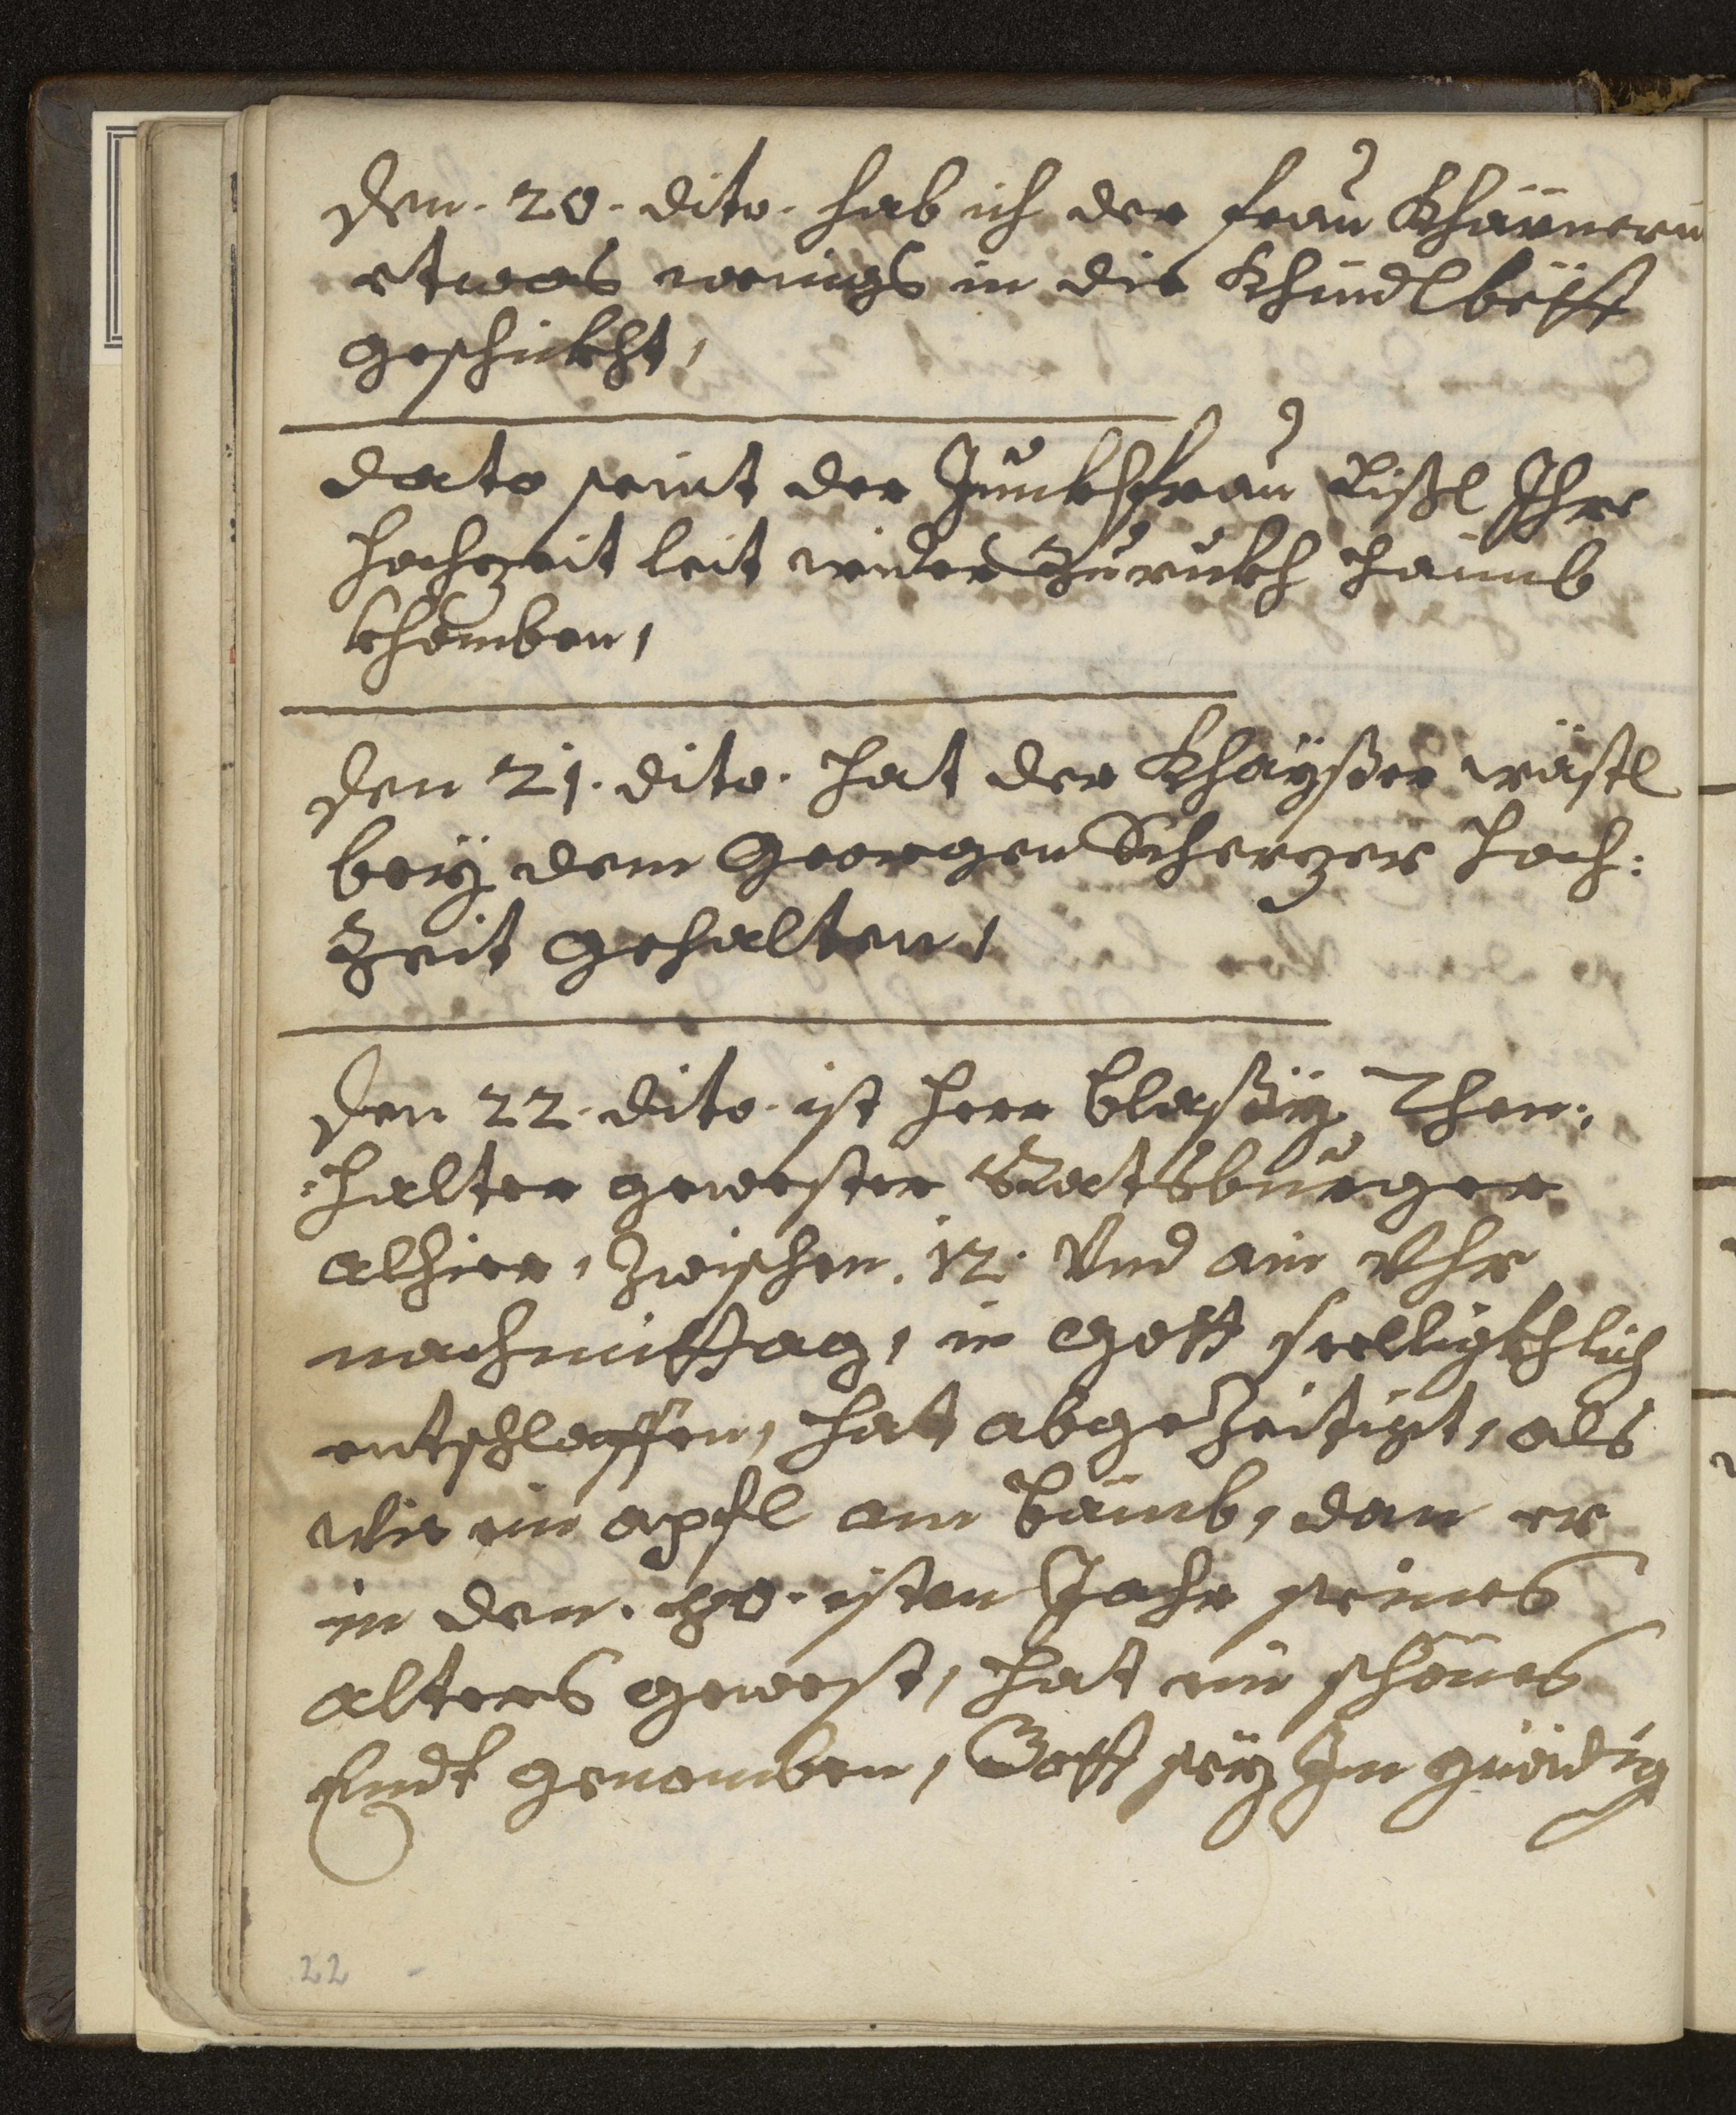 Den. 20. dito. hab ich der frau Khärnerin
etwas wenigs in die Khindlbött
geschickht,
dato seint der Junckhfrau Lißl Ihre
hochzeit leit wider Zuruckh haimb
khomben,
Den 21. dito. hat der Khayßer wästl
bey dem Georgen Scherzer hoch:
Zeit gehalten,
Den 22. dito. ist herr blaßÿ Then:
:halter gewester Ratsburger
alhier, Zwischen. 12. Vnd ain Vhr
nachmittag, in Gott seelligkhlich
entschlaffen, hat abgezeitigt, als
wie ein apfl am baimb, dan er
in den. 80. isten Jahr seines
alters gewest, hat ein schönes
Endt genomben, Gott seÿ Im gnedig
22